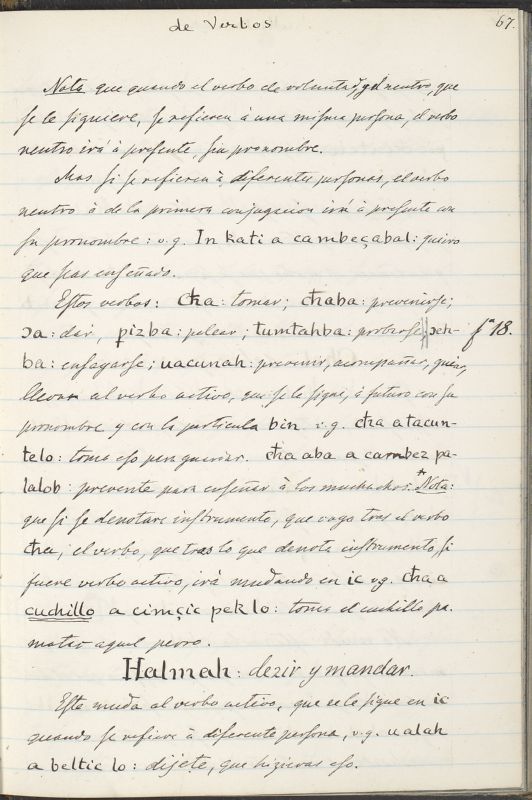 de Verbos
67.
Nota que quando el verbo de voluntad, y el neutro, que
se le siguiere, se refieren à una misma persona, el verbo
neutro irá à presente, sin pronombre.
Mas si se refieren à diferentes personas, el verbo
neutro ò de la primera conjugacion irá à presente con
su pronombre: v.g. In kati a cambeçabal: quiero
que seas enseñado.
Estos verbos: cħa: tomar; cħaba: prevenirse;
ɔa: dar, pizba: pelear; tumtahba: probarse; ɔeh-
fᵃ 18.
ba: ensayarse; uacunah: prevenir, acompañar, guiar,
llevan al verbo activo, que se le sigue, à futuro con su
pronombre y con la particula bin v.g. cħa a tacun-
telo: toma eso para guardar. cħa aba a cambez pa-
lalob: prevente para enseñar à los muchachos. *Nota:
que si se denotare instrumento, que cayo tras el verbo
cħa; el verbo, que tras lo que denota instrumento, si
fuere verbo activo, irá mudando en ic vg. cħa a
cuchillo a cimçic peklo: toma el cuchillo pa.
matar aquel perro.
Halmah: dezir y mandar.
Este muda al verbo activo, que se le sigue en ic
quando se refiere à diferente persona, v.g. u alah
a beltic lo: dijete, que hizieras eso.